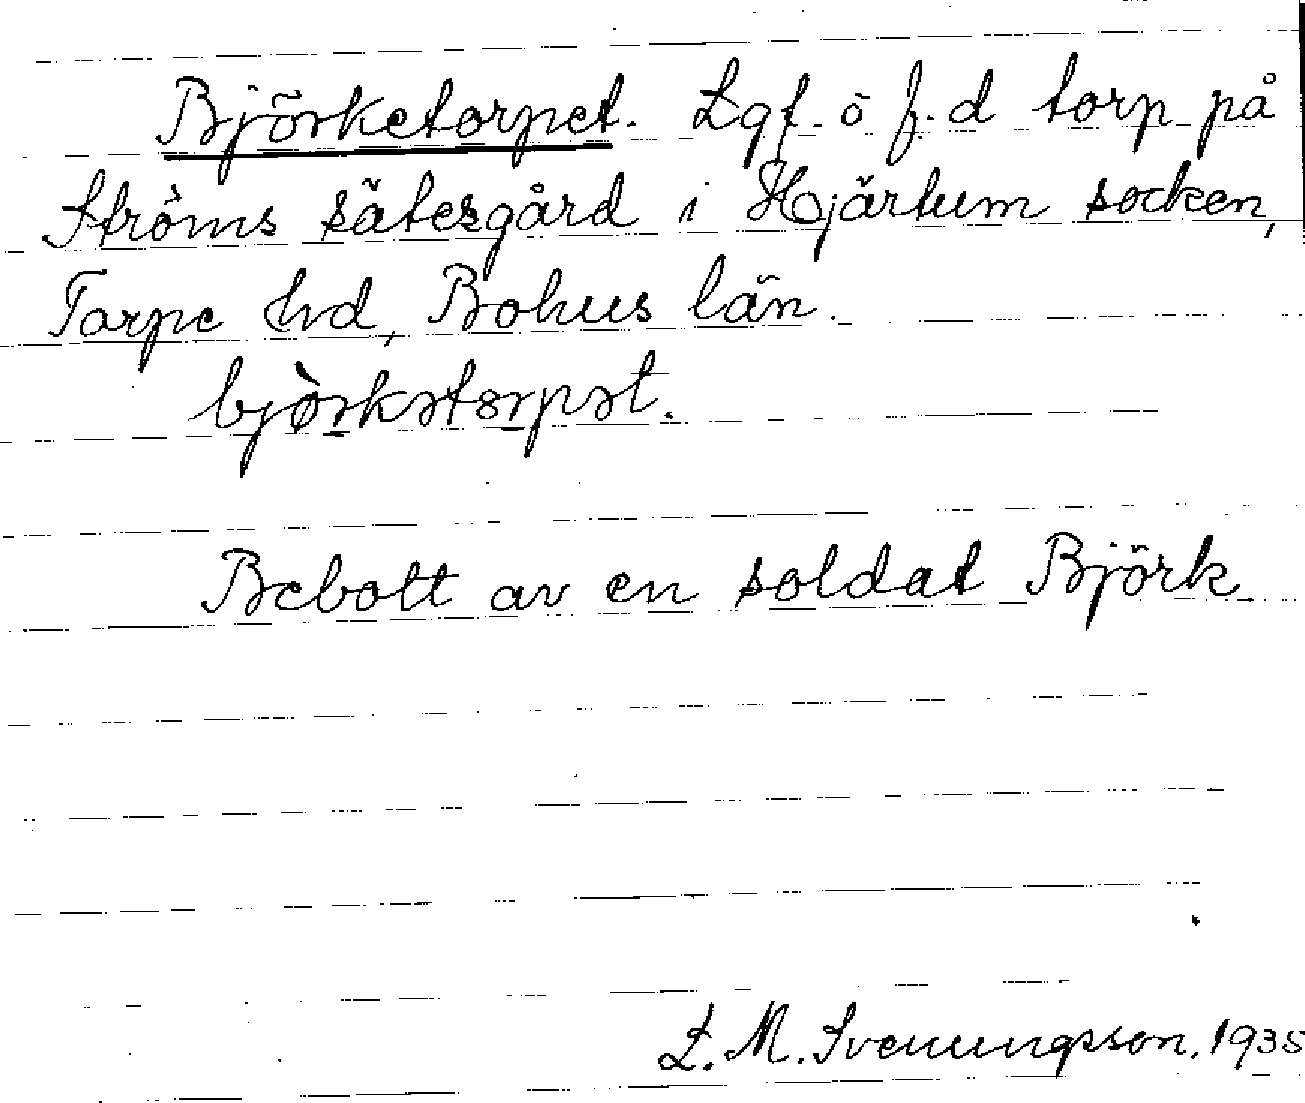 Björketorpet. Lgf. ö f.d torp på
Ströms sätesgård i Hjärtum socken,
Torpe hd, Bohus län.
bjòrkətɷrpət.
Bebott av en soldat Björk
L. M. Svenungsson. 1935